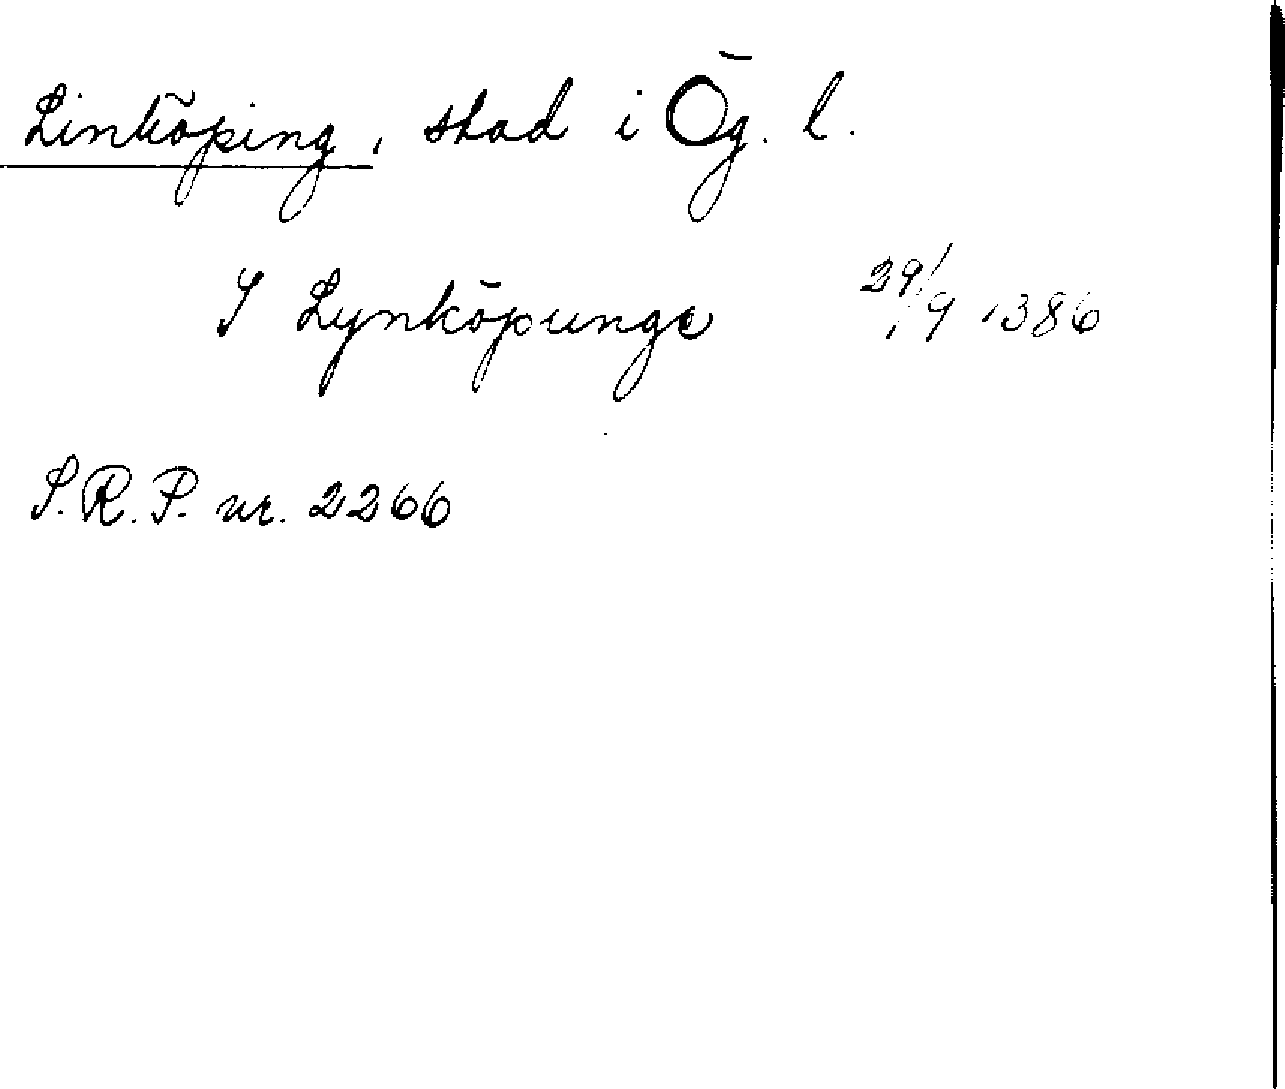 Linköping, stad i Ög. l.
I Lynköpunge 29/9 1386
S.R.P. nr. 2266